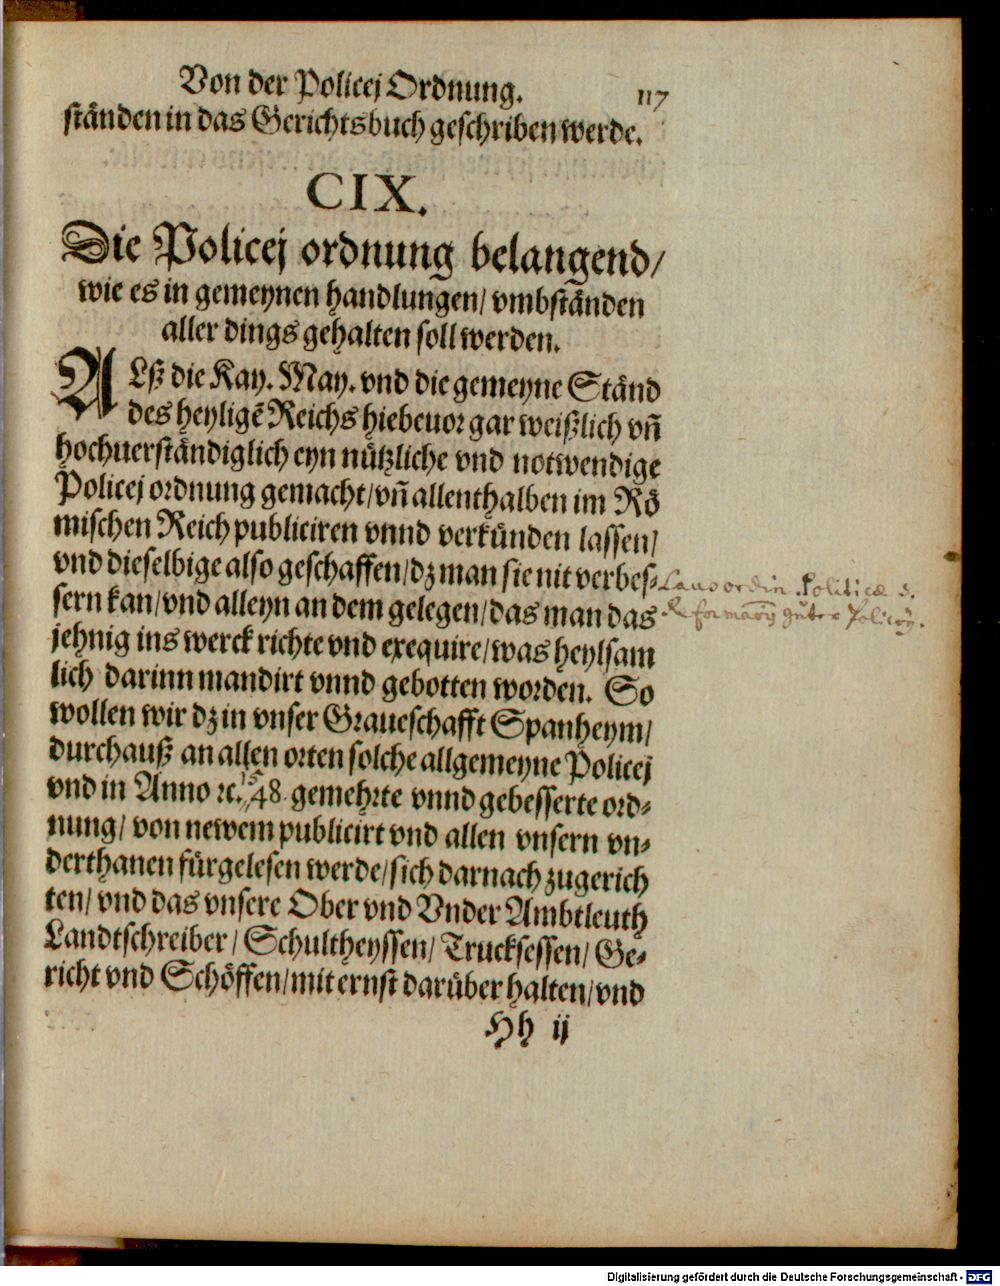 Von der Policej Ordnung. 117
ständen in das Gerichtsbuch geschriben werde.
CIX.
Die Policej ordnung belangend/
wie es in gemeynen handlungen/ vmbständen
aller dings gehalten soll werden.
ALß die Kay. May. vnd die gemeyne Ständ
des heyligẽ Reichs hiebeuor gar weißlich vñ
hochuerständiglich eyn nützliche vnd notwendige
Policej ordnung gemacht/ vñ allenthalben im Rö
mischen Reich publiciren vnnd verkünden lassen/
vnd dieselbige also geschaffen/ dz man sie nit verbes-
sern kan/ vnd alleyn an dem gelegen/ das man das
jehnig ins werck richte vnd exequire/ was heylsam
lich darinn mandirt vnnd gebotten worden. So
wollen wir dz in vnser Graueschafft Spanheym/
durchauß an allen orten solche allgemeyne Policej
vnd in Anno ꝛc. 48 gemehrte vnnd gebesserte ord-
nung/ von newem publicirt vnd allen vnsern vn-
derthanen fürgelesen werde/ sich darnach zugerich
ten/ vnd das vnsere Ober vnd Vnder Ambtleuth
Landtschreiber/ Schultheyssen/ Trucksessen/ Ge-
richt vnd Schöffen/ mit ernst darüber halten/ vnd
Hh ij
Politicæ
guter Policey.
Digitalisierung gefördert durch die Deutsche Forschungsgemeinschaft - DFG